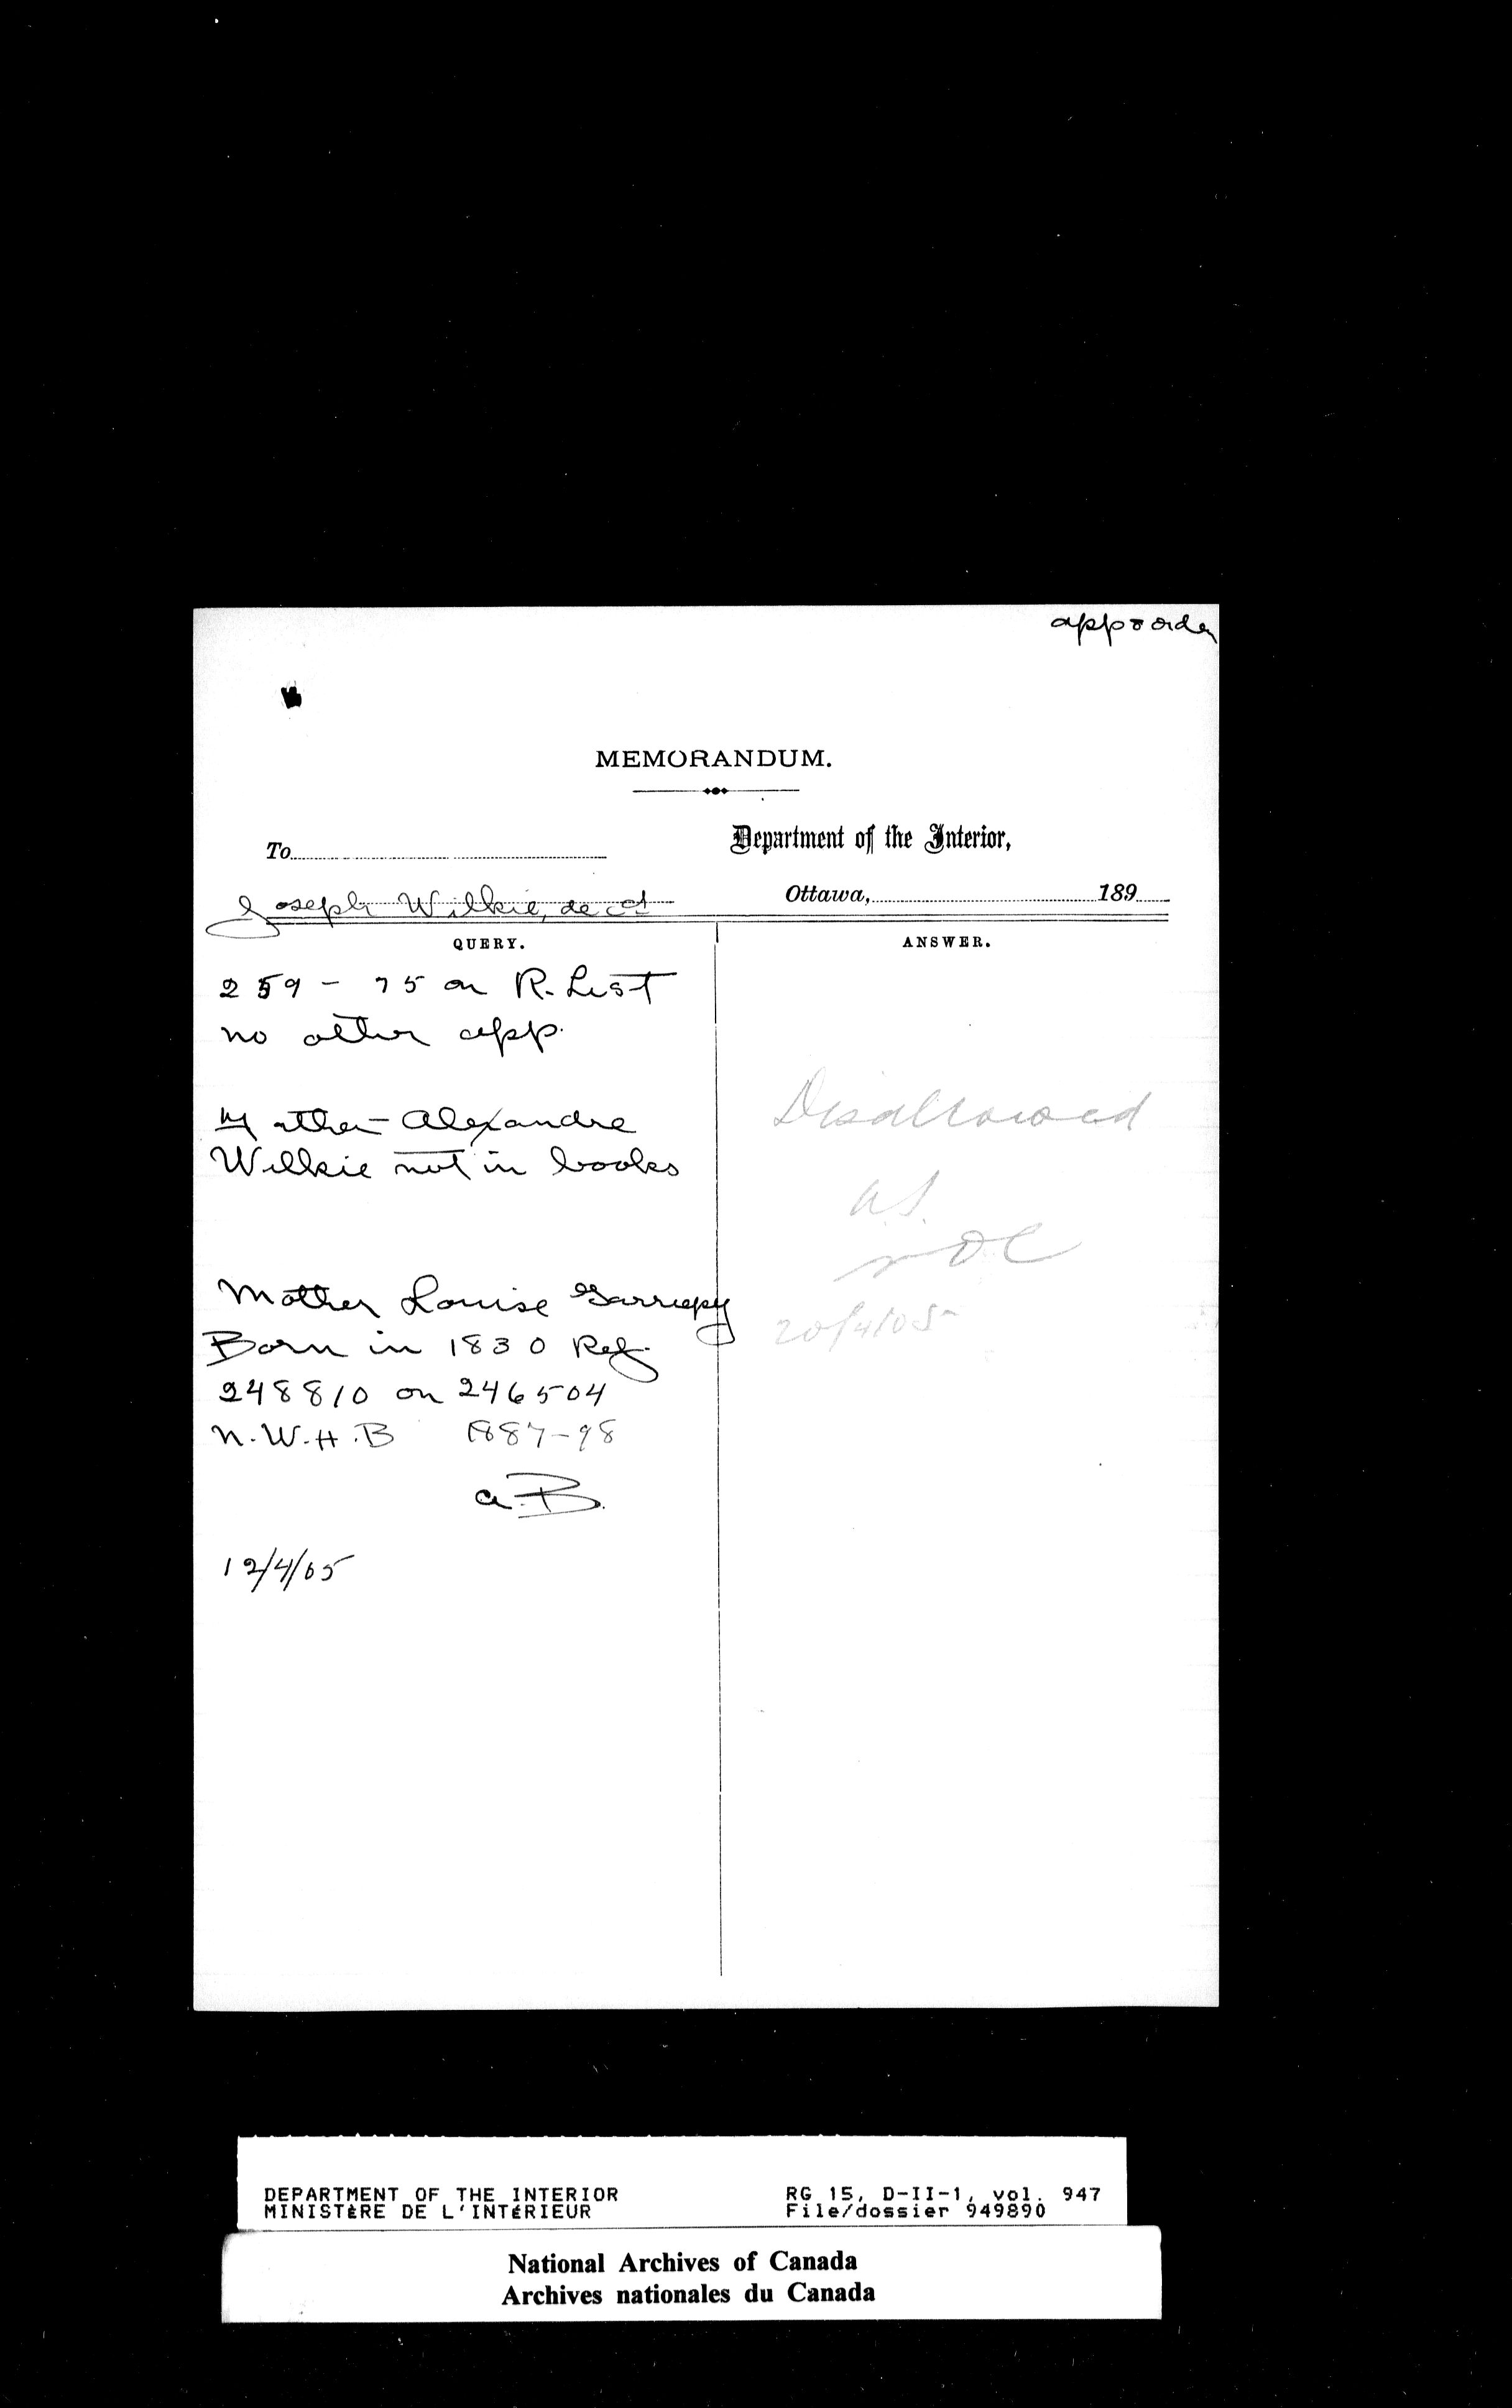 MEMORANDUM.
To
Department of the Interior,
Joseph Wilkie, dec'd
Ottawa, 189
QUERY.
ANSWER.
259 - 75 on R. List
no other app.
Father - Alexandre
Wilkie not in books
Mother Louise Garriepy
Born in 1830 Ref.
248810 on 246504
N.W.H.B 1887-98
a.B.
12/4/05
Disallowed
20/4/05
DEPARTMENT OF THE INTERIOR
MINISTÈRE DE L'INTÉRIEUR
RG 15, D-II-1, vol. 947
File/dossier 949890
National Archives of Canada
Archives nationales du Canada